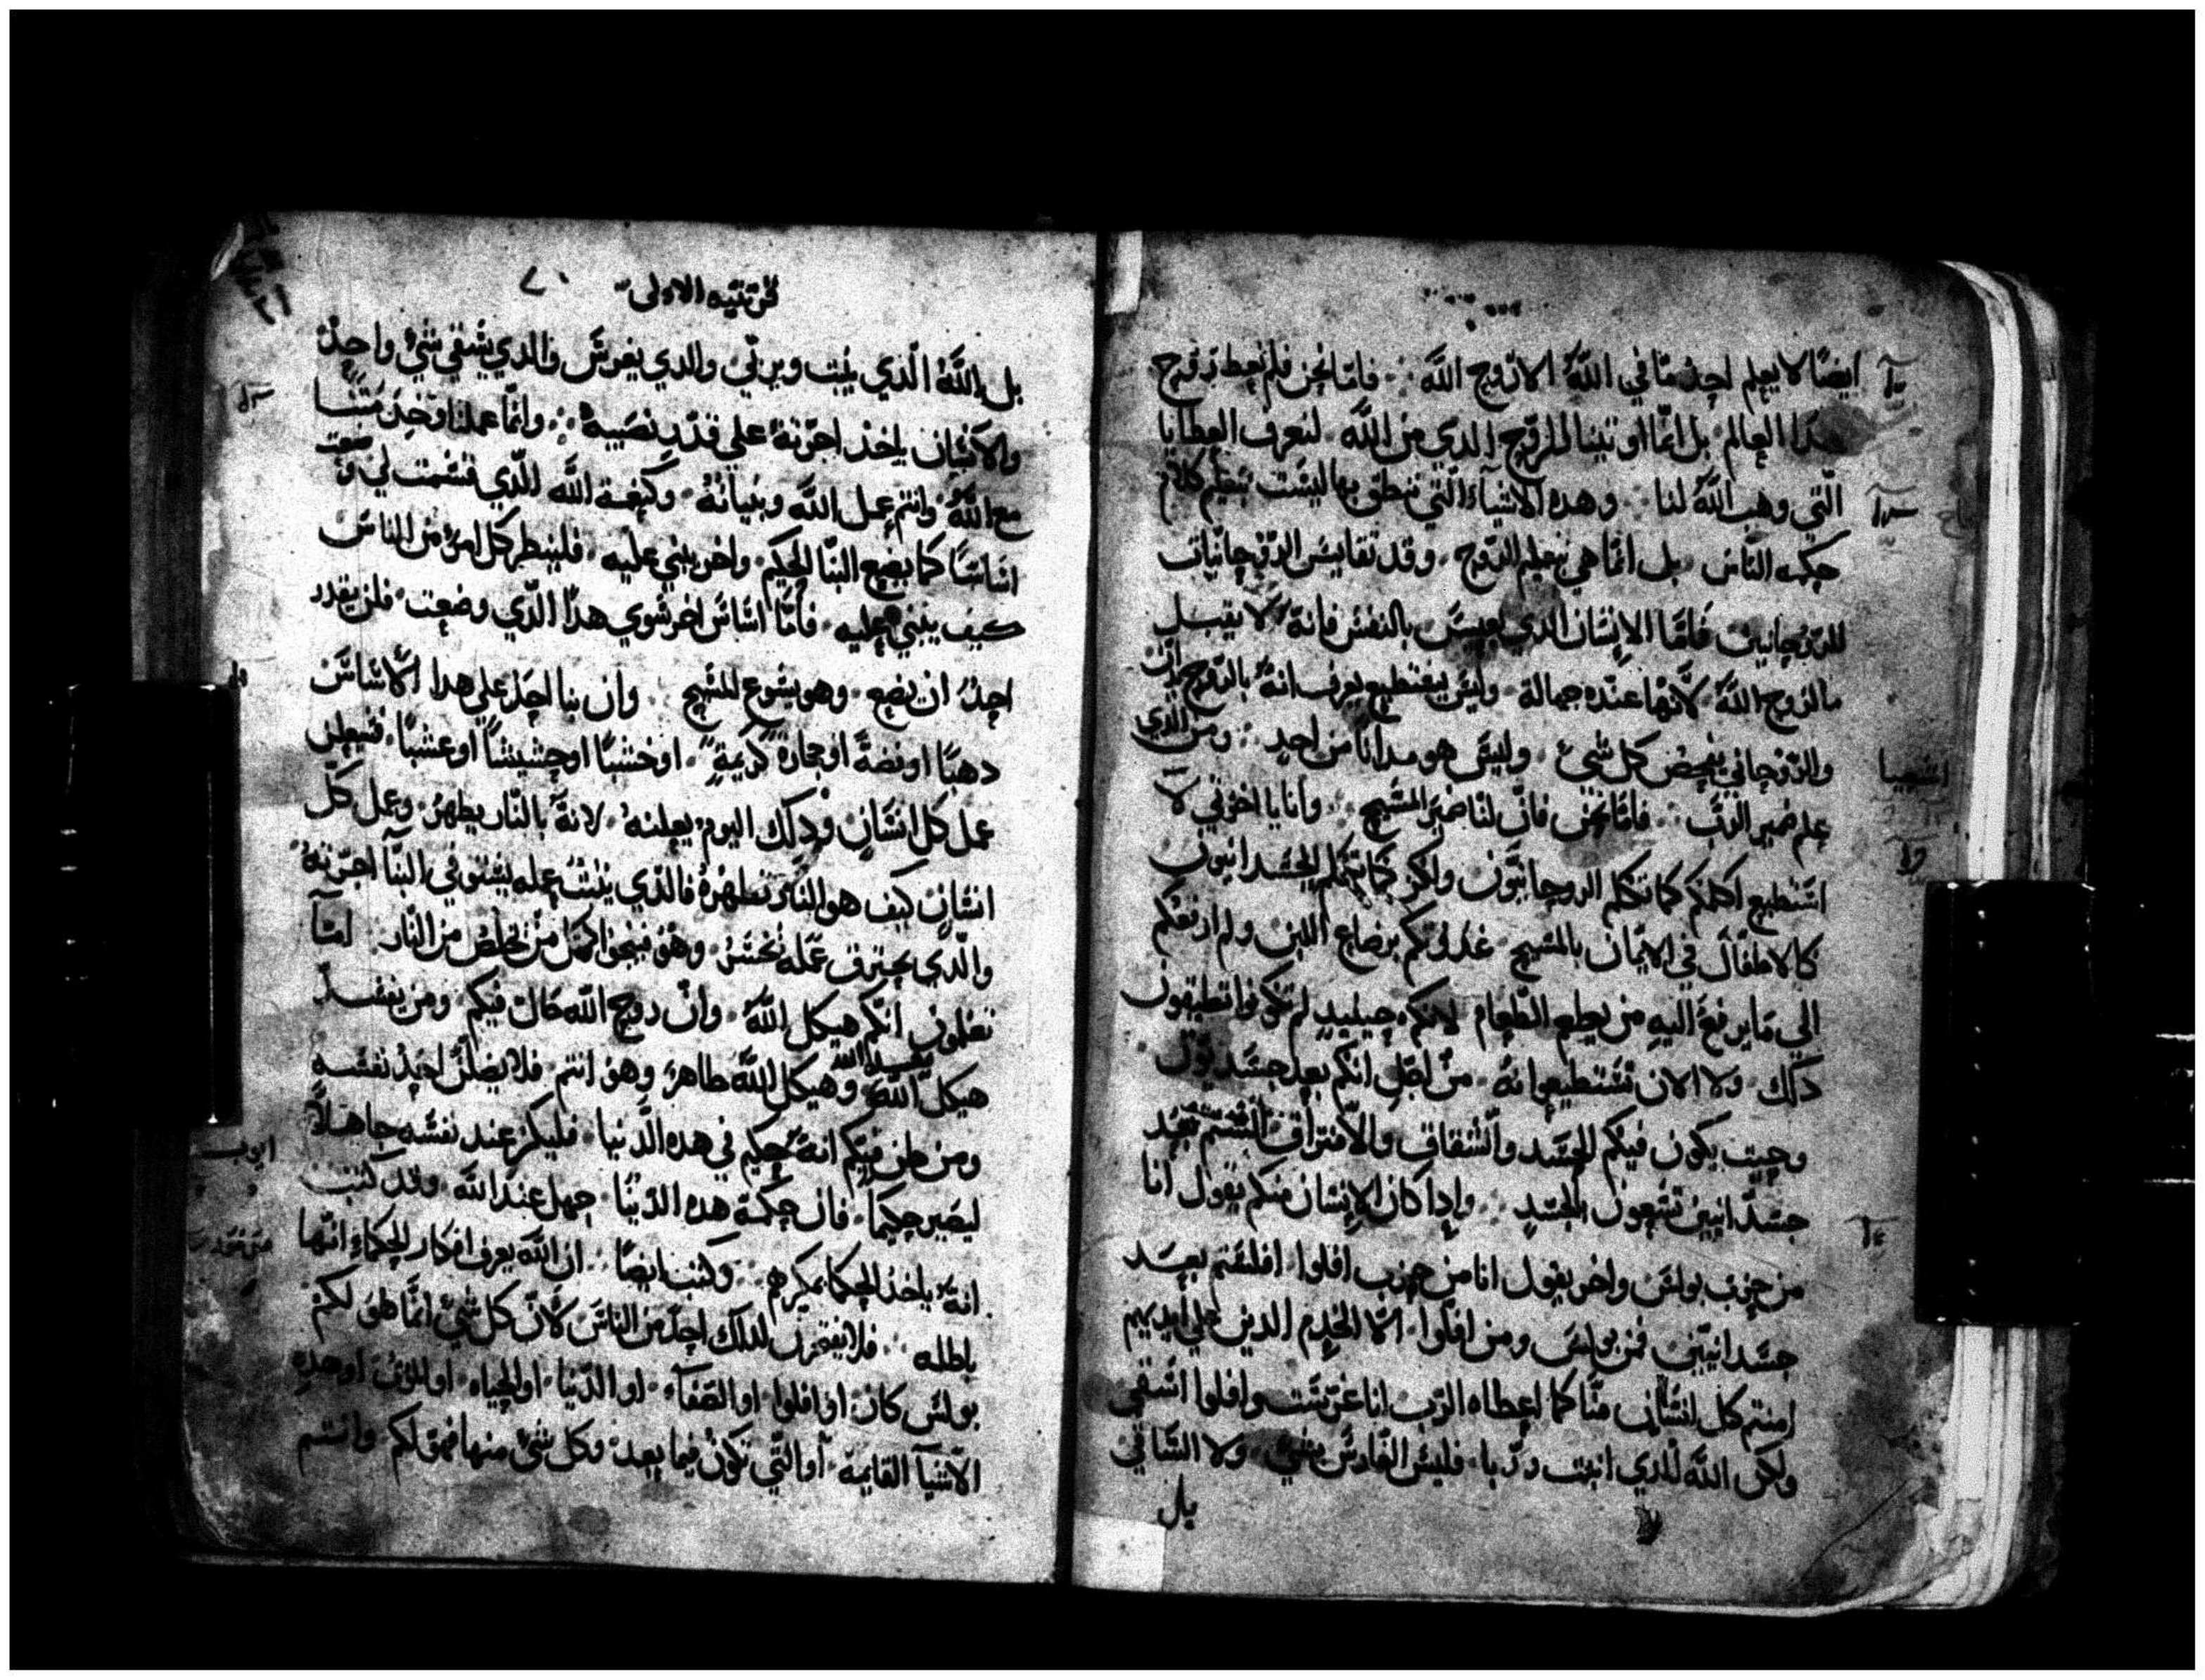 ايضًا لا يعلم احد ما في الله الا روح الله فاما نحن فلم نعط روح
هذا العالم بل انما اوتينا الروح الذي من الله لنعرف العطايا
الّتي وهب الله لنا وهده الاشيآء الّتي ننطق بها ليست بتعليم كلام
حكمه النّاس بل انما هي بتعليم الروح وقد نقايس الروحانيات
للروحانيين فامّا الانسان الدي بالنفس فانه لا يقبل
ما لروح الله لانها عنده جهالة وليس يستطيع يعرف انه بالروح
والروحاني يفحص كل شي وليس هو مدانًا من احد ومن الدي
علم ضمير الرب فامّا نحن فانّ لنا ضمير المسيح وانا يا اخوتي لا
اشيعيا
استطيع اكلمكم كما تكلم الروحانيون ولكن كما تكلم الجسدانيون
كالاطفال في الايمان بالمسيح غدوتكم برضاع اللبن ولم ارفعكم
الي ما يرفع اليه من يطعم الطعام لانكم حينيدٍ لم تكونوا تطيقون
دلك ولا الان تستطيعوا نه من اجل انكم بعد جسديون
وحيت يكون فيكم الحسد والشقاق والافتراق الستم بعد
جسدانيين تسعون بالجسد وادا كان الانسان منكم يقول انا
من حزب بولس واخر يقول انا من حزب افلوا افلستم بعد
جسدانيّين فمن بولس ومن افلوا الا الخدم الدين علي ايديهم
امنتم كل انسان منّا كما اعطاه الرب انا غرست وافلوا اسقي
ولكن الله الدي انبت وربّا فليس الغارس بشي ولا السّاقي
بل
قرنتيه الاولي
بل الله الّدي ينبت ويربّي والدي يغرس والدي يسقي شي واحد
والانسان ياخد اجرته علي قدر نصبه وانما عملنا
مع الله وانتم عمل الله وبنيانه وكنعمة الله الّدي قسمت لي وضعت
اساسًا كما يضع البنا الحكيم واخر يبني عليه فلينظر كل امرء من الناس
كيف يبني عليه فامّا اساس اخر سوي هدا الّدي وضعت فلن يقدر
احد ان يضع وهو يسوع المسيح وان بنا احد علي هدا الاساس
دهبًا او فضة او حجارة كريمة او خشبًا او حشيشًا او عشبًا فسيعلن
عمل كل انسان ودلك اليوم يعلنه لانه بالنّار يظهر وعمل كل
انسان كيف هو النار تظهره فالّدي يثبت عمله يستوفي البنّآ اجرته
والّدي يحترق عمله يخسر وهو فينجوا كمن يخلص من النّار امآ
تعلمون انكم هيكل الله وانّ روح الله حالّ فيكم ومن يفسد
هيكل الله يفسده الله وهيكل الله طاهر وهو انتم فلا يضلنّ احد نفسه
ومن ظن فيكم انه حكيم في هده الدنيا فليكن عند نفسه جاهلاً
ايوب
ليصير حكيمًا فان حكمة هده الدنيا جهل عند الله وقد كتب
انه ياخد الحكما بمكرهم وكتب ايضًا ان الله يعرف افكار الحكماء انها
باطله فلا يفتخرن لدلك احد من الناس لانّ كل شي انّما هو لكم
بولس كان او افلوا او الصفآ او الدّنيا او الحياه او الموت او هده
الاشيآ القايمة او الّتي تكون فيما بعد وكل شي منها فهو لكم وانتم